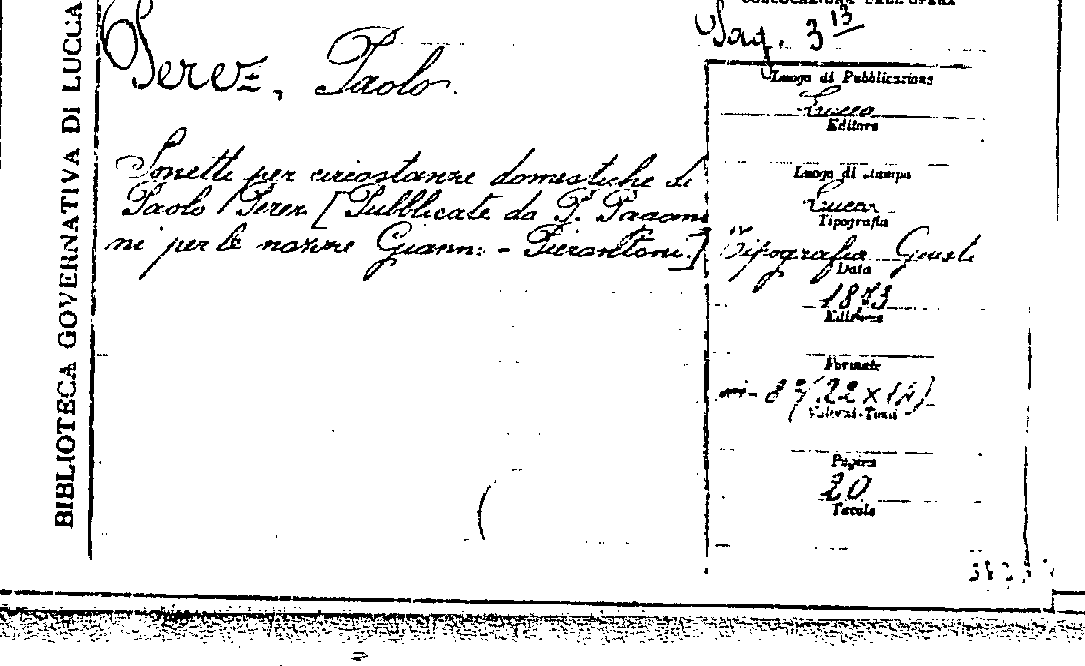 BIBLIOTECA GOVERNATIVA DI LUCCA
Perez, Paolo.
Sonetti per circostanze domestiche di
Paolo Perez [Pubblicate da P. Paganni
ni per le nozze Gianni - Pierantoni.]
COLLOCAZIONE DELL'OPERA
3 13
Luogo di Pubblicazione
Lucca
Editore
Luogo di stampa
Lucca
Tipografia
Tipografia Giusti
Data
1873
Edizione
Formato
in- 8º (22 x 14)
Volumi-Tomi
Pagine
20
Tavole